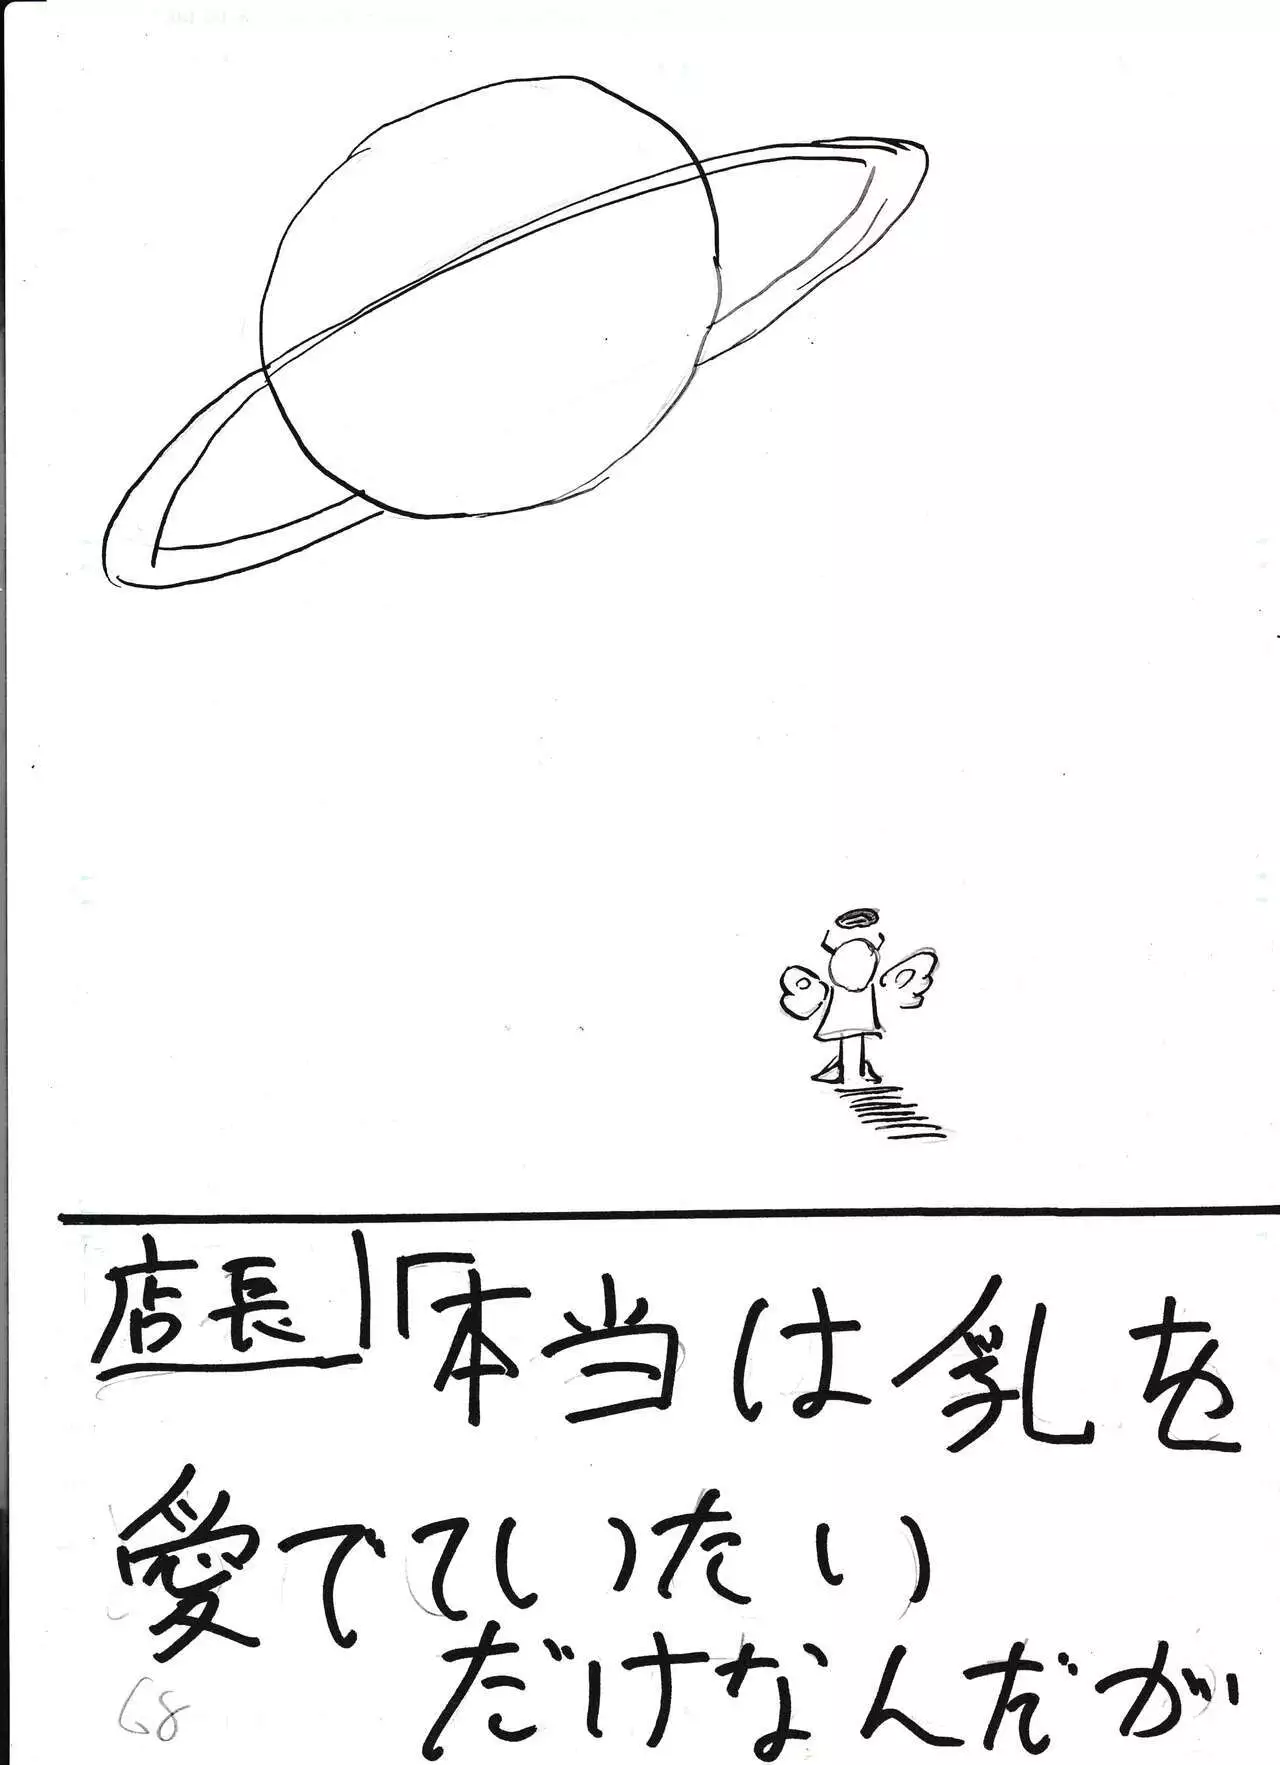 店長「本当は乳を
愛でていたい
だけなんだが
68